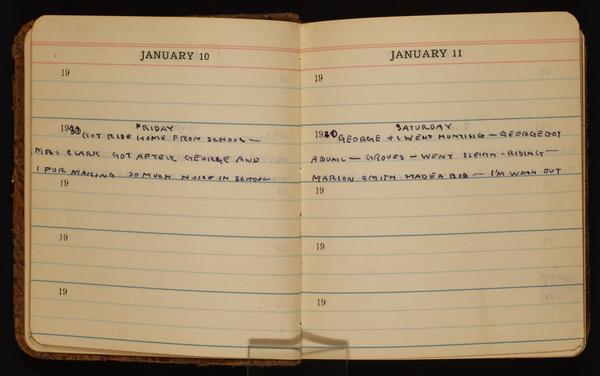 JANUARY 10
19
FRIDAY
1930 GOT RIDE HOME FROM SCHOOL —
MRS CLARK GOT AFTER GEORGE AND
I FOR MAKING SO MUCH NOISE IN SCHOOL
19
19
19
JANUARY 11
19
SATURDAY
1930 GEORGE & I WENT HUNTING — GEORGE GOT
— GROVES — WENT SLEIGH-RIDING —
MARION SMITH MADE A BOB — I'M WORN OUT
19
19
19